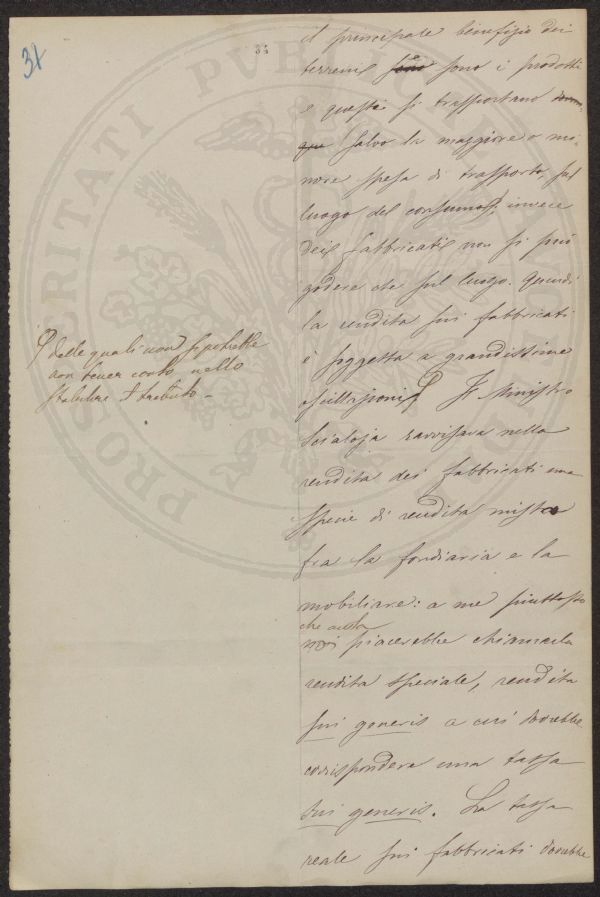 31
34
il principale benefizio dei
terreni sono sono i prodotti
e questi si trasportano dovun-
que salvo la maggiore o mi-
nore spesa di trasporto, sul
luogo del consumo; invece
dei fabbricati non si può
godere che sul luogo. Quindi
la rendita sui fabbricati
è soggetta a grandissime
oscillazioni. Il Ministro
Scialoja ravvisava nella
rendita dei fabbricati una
specie di rendita mista
fra la fondiaria e la
mobiliare: a me piuttosto
che
piacerebbe chiamarla
rendita speciale, rendita
sui generis a cui dovrebbe
corrispondere una tassa
sui generis. La tassa
reale sui fabbricati dovrebbe
delle quali non si potrebbe
non tener conto nello
stabilire il tributo -
PROSPERITATI PUBLICAE